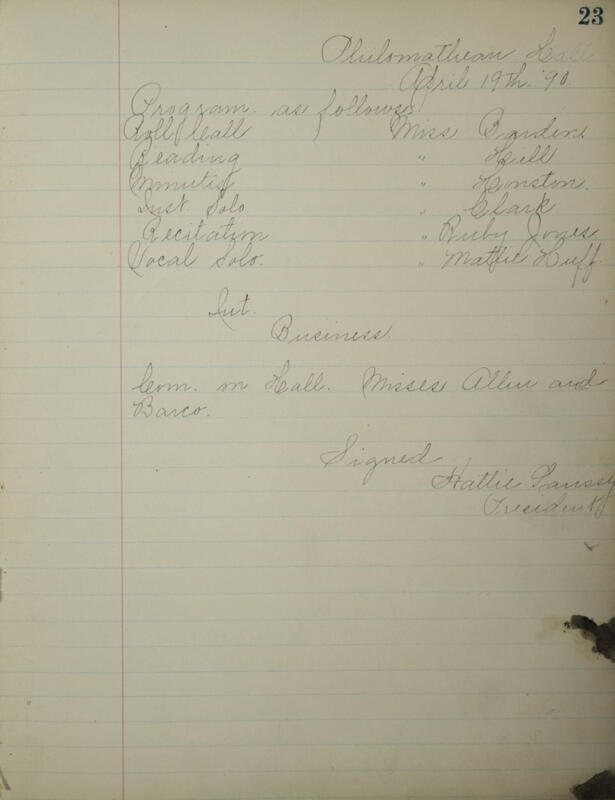 23
Philomathean Hall
April 19th '90
Program as follows:
Roll Call Miss Bardin
Reading " Hill
Minutes " Houston.
Inst. Solo " Clark
Recitation " Ruby Jones.
Vocal Solo. " Mattie Huff.
Int.
Business.
Com. on Hall. Misses Allen and
Barco.
Signed
Hattie
President